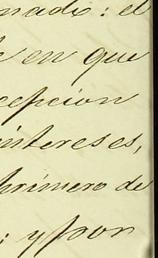 nado: el
en que
cepcion
intereses,
primero de
; y por